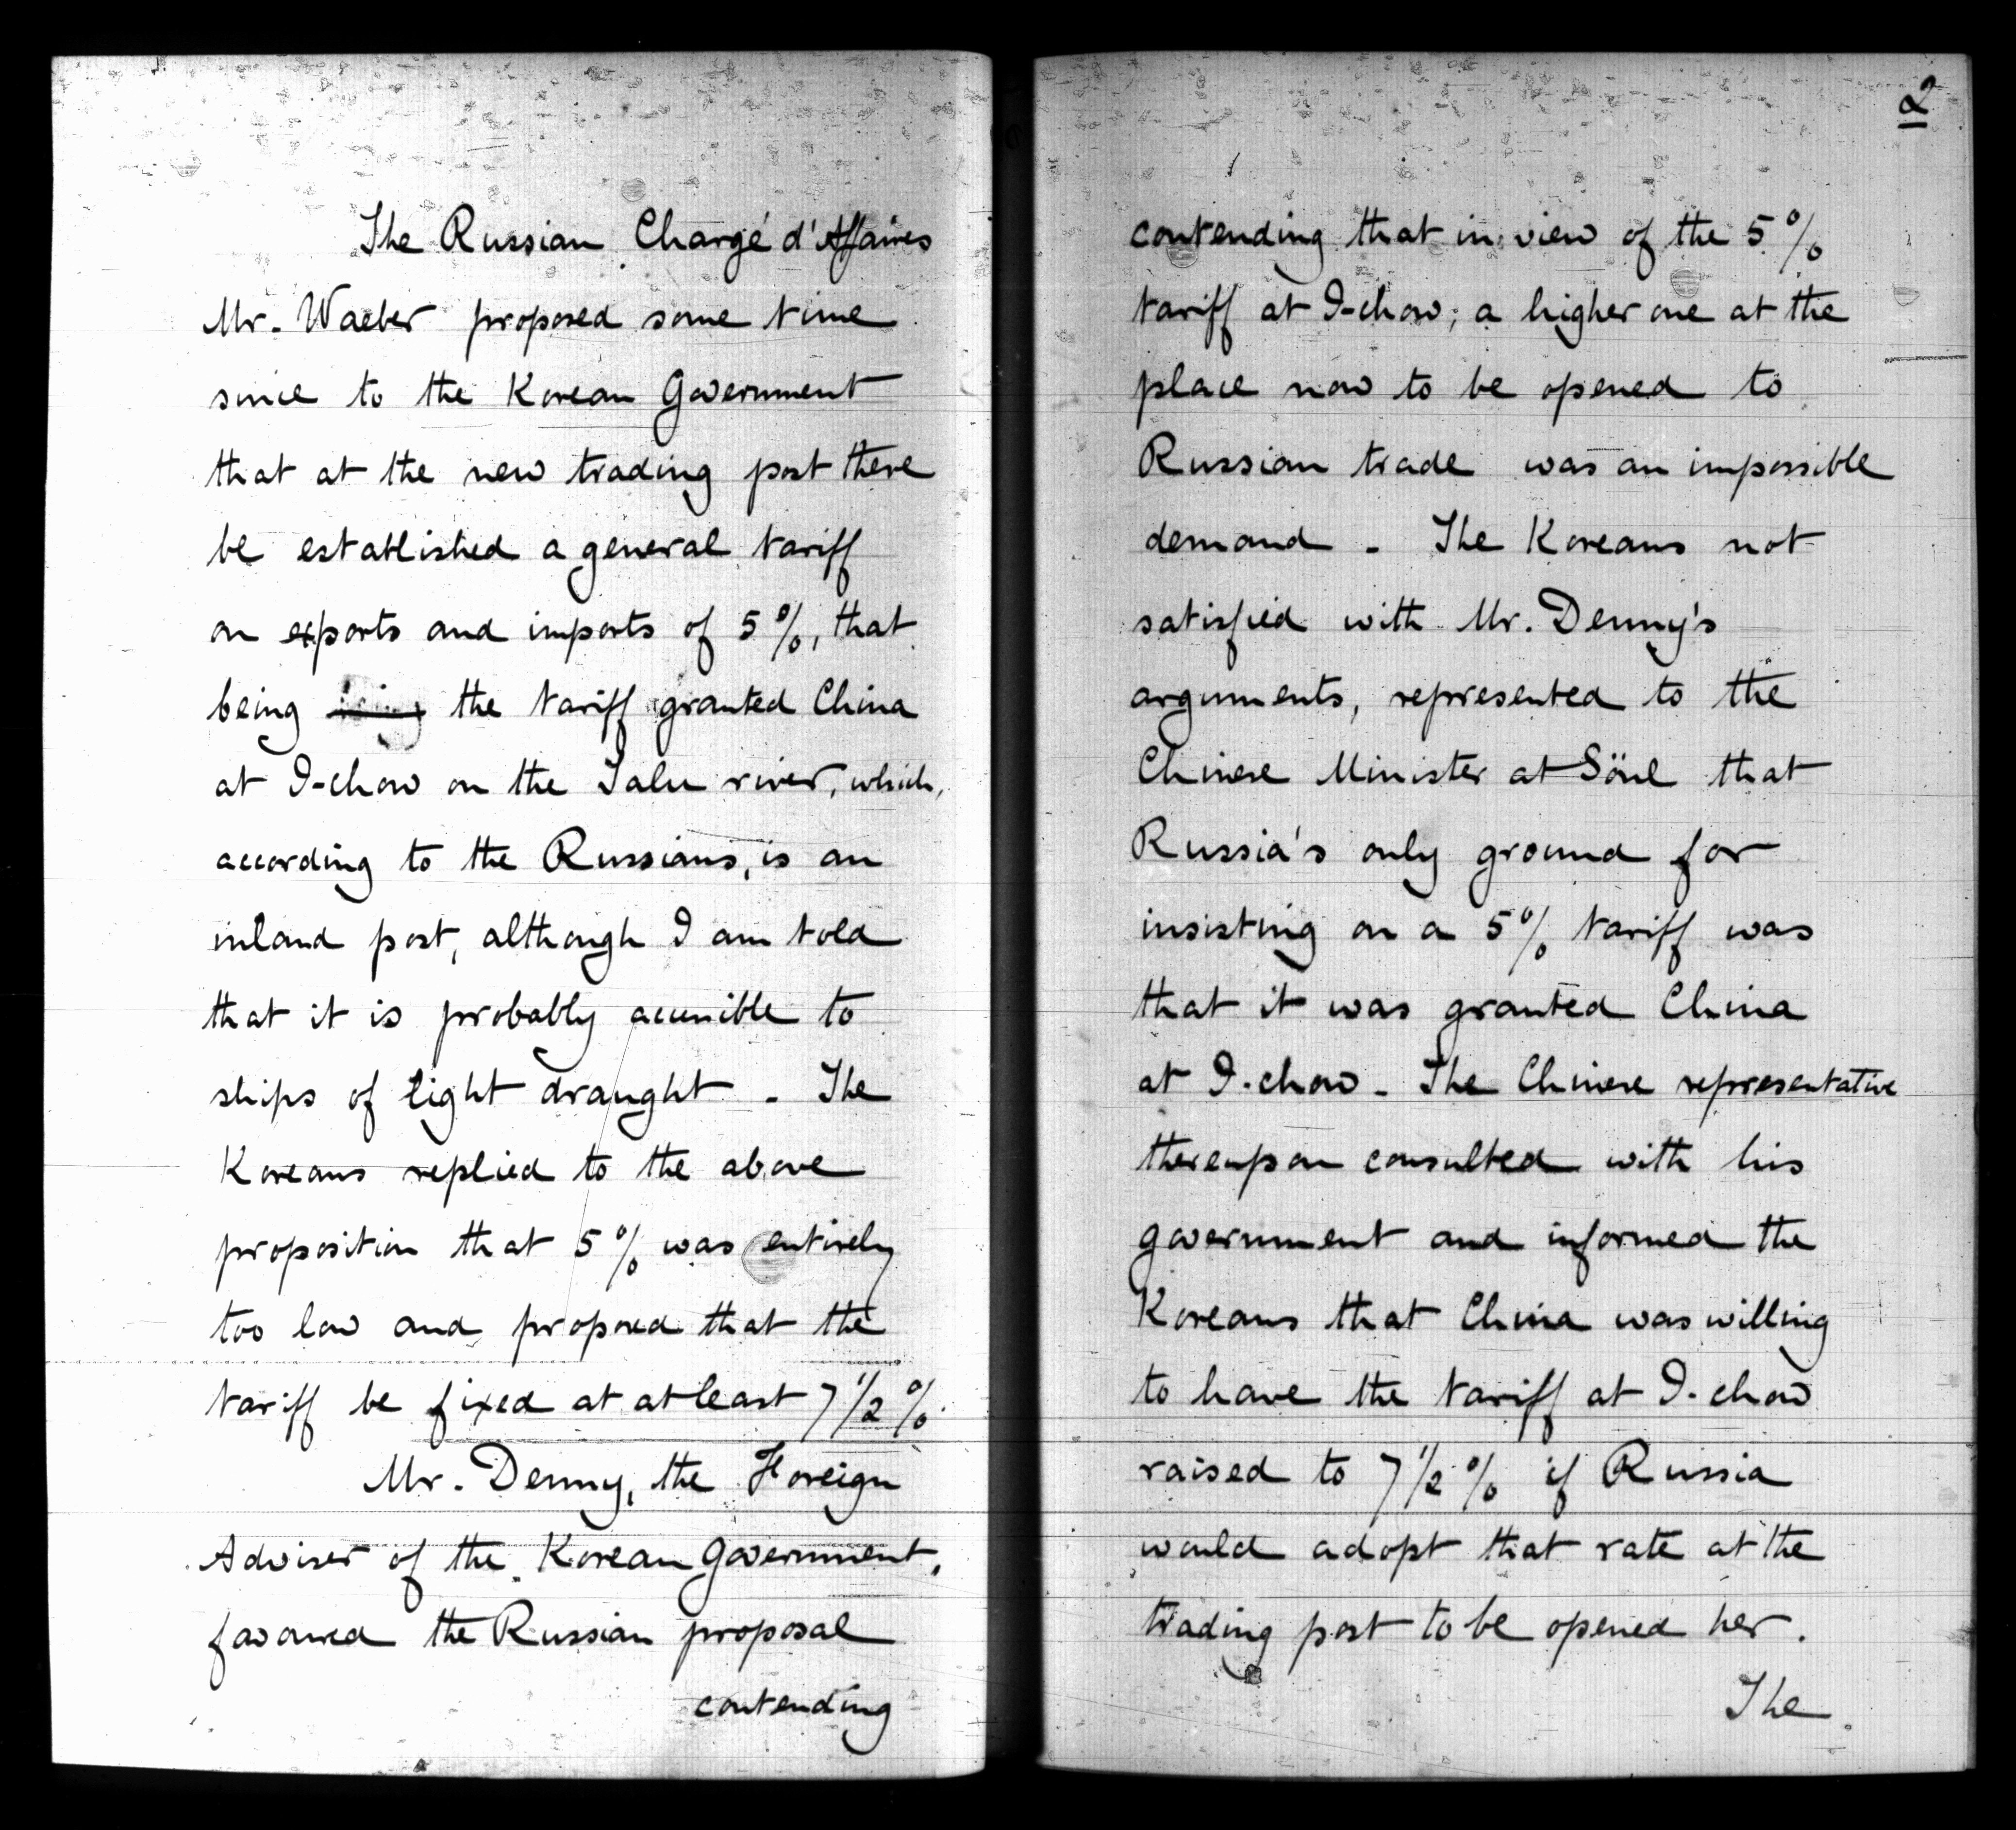 The Russian Chargé d'Affaires
Mr. Waeber proposed some time
since to the Korean Government
that at the new trading post there
be established a general tariff
on exports and imports of 5%, that
being the tariff granted China
at I-chow on the Yalu river, which,
according to the Russians, is an
inland post, although I am told
that it is probably accessible to
ships of light draught. The
Koreans replied to the above
proposition that 5% was entirely
too low and proposed that the
tariff be fixed at at least 7 1/2 %.
Mr. Denny, the Foreign
Adviser of the Korean Government,
favoured the Russian proposal
contending
2
contending that in view of the 5%
tariff at I-chow, a higher one at the
place now to be opened to
Russian trade was an impossible
demand. The Koreans not
satisfied with Mr. Denny's
arguments, represented to the
Chinese Minister at Söul that
Russia's only ground for
insisting on a 5% tariff was
that it was granted China
at I-chow. The Chinese representative
thereupon consulted with his
government and informed the
Koreans that China was willing
to have the tariff at I-chow
raised to 7 1/2 % if Russia
would adopt that rate at the
trading post to be opened her.
The